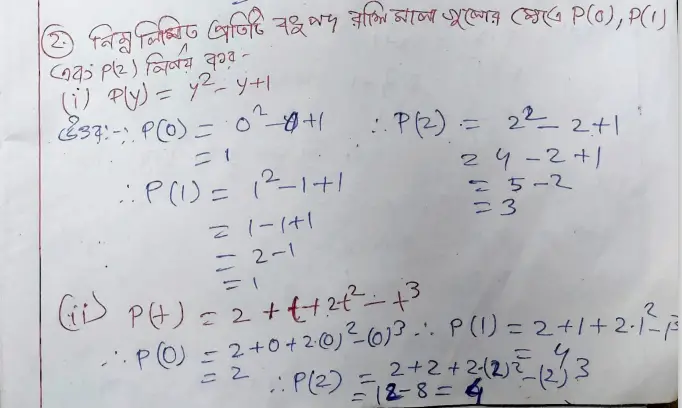 2. নিম্ন লিখিত প্রতিটি বহুপদ রাশি মালা গুলোর ক্ষেত্রে P(0), P(1)
এবং P(2) নির্ণয় কর -
(i) P(y) = y² - y + 1
উত্তর:- ∴ P(0) = 0² - 0 + 1 ∴ P(2) = 2² - 2 + 1
= 1 = 4 - 2 + 1
∴ P(1) = 1² - 1 + 1 = 5 - 2
= 1 - 1 + 1 = 3
= 2 - 1
= 1
(ii) P(t) = 2 + t + 2t² - t³
∴ P(0) = 2 + 0 + 2·(0)² - (0)³ ∴ P(1) = 2 + 1 + 2·1² - 1³
= 2 = 4
∴ P(2) = 2 + 2 + 2·(2)² - (2)³
= 12 - 8 = 4